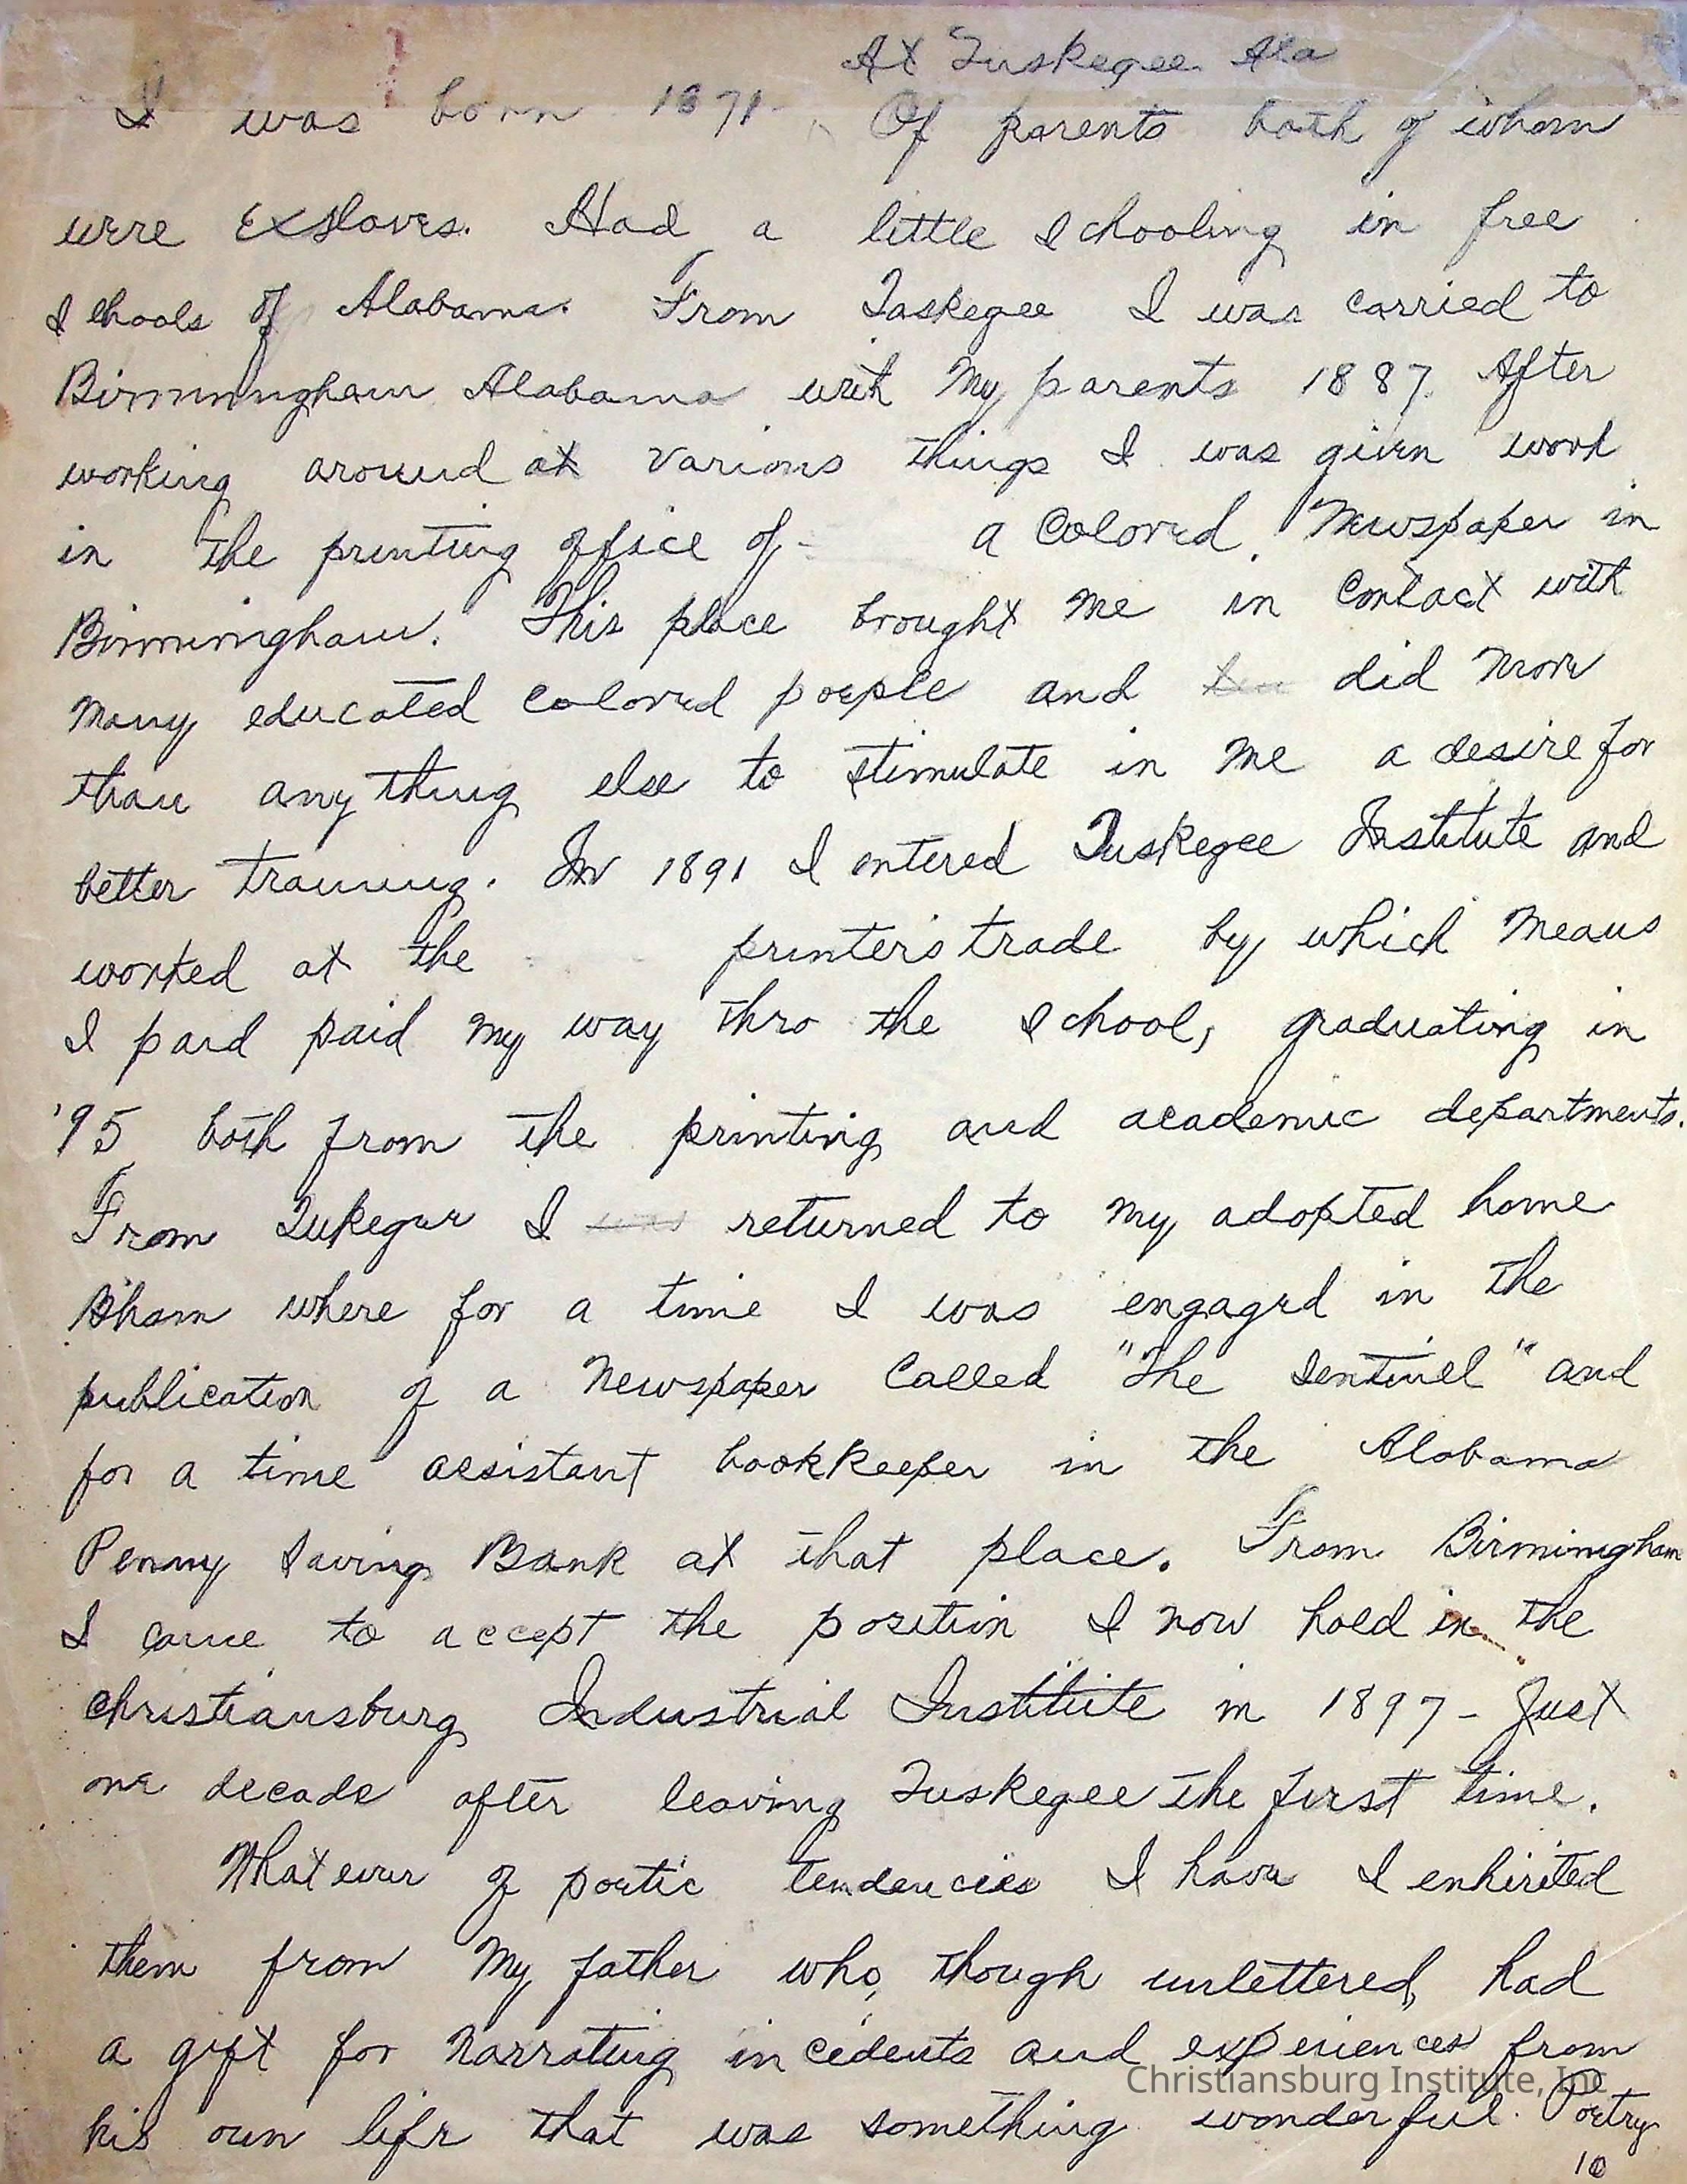 At Tuskegee Ala
I was born 1871- Of parents both of whom
were Exslaves. Had a little schooling in free
schools of Alabama. From Taskegee I was carried to
Birmingham Alabama with my parents 1887. After
working around at various things I was given work
in the printing office of - a Colored Newspaper in
Birmingham. This place brought me in contact with
many educated colored poeple and did more
than any thing else to stimulate in me a desire for
better training. In 1891 I entered Tuskegee Institute and
worked at the printer's trade by which means
I paid paid my way thro the school, graduating in
'95 both from the printing and academic departments.
From Tukegee I was returned to my adopted home
B'ham where for a time I was engaged in the
publication of a Newspaper called "The Sentinel" and
for a time assistant bookkeeper in the Alabama
Penny Saving Bank at that place. From Birmingham
I came to accept the position I now hold in the
Christiansburg Industrial Institute in 1897 - Just
one decade after leaving Tuskegee the first time.
Whatever of poetic tendencies I have I enhirited
them from my father who, though unlettered, had
a gift for narrating incedents and experiences from
Christiansburg Institute, Inc
his own life that was something wonderful. Poetry
10